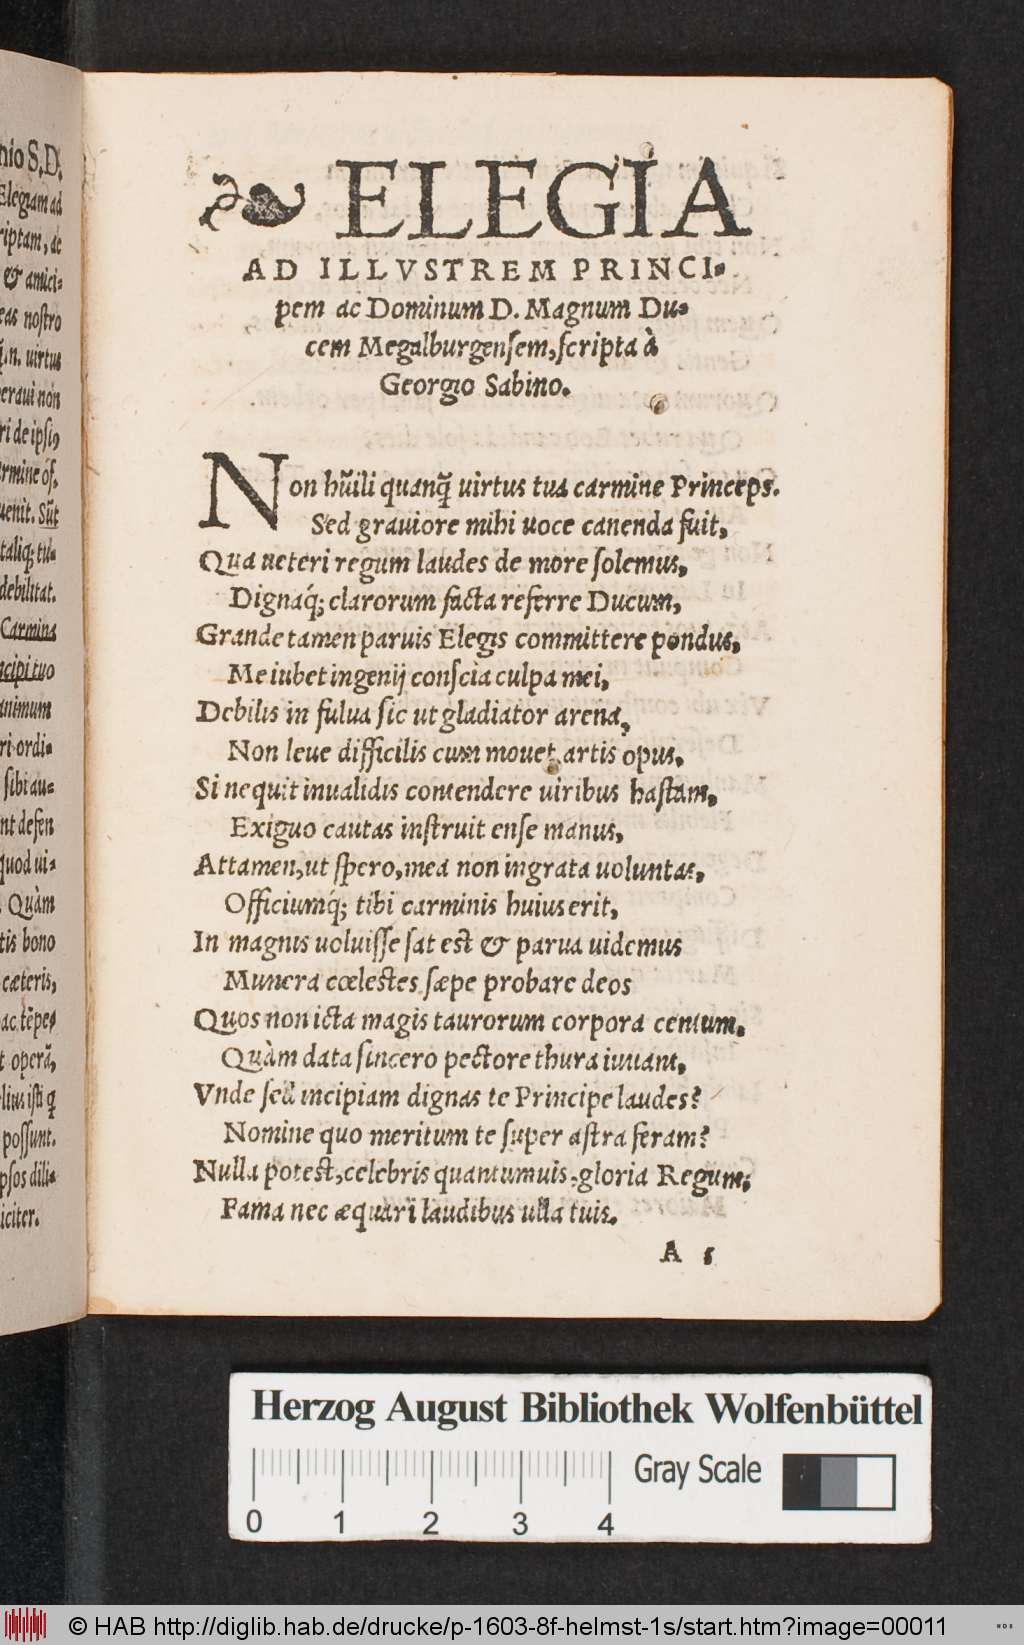 nio S.D.
Elegiam ad
riptam, ac
& amici-
eas nostro
q̃.n. uirtus
eraui non
ri de ipsi,
rmine of,
uenit. Sūt
taliq; tu-
debilitat.
Carmina
ncipi tuo
animum
ri ordi-
sibi au-
nt defen
quod ui-
. Quàm
tis bono
cæteris,
ac tēpe,
t operā,
lius isti q̃
possunt.
psos dili-
iciter.
❧ ELEGIA
AD ILLVSTREM PRINCI-
pem ac Dominum D. Magnum Du-
cem Megalburgensem, scripta à
Georgio Sabino.
Non hūili quanq̃ uirtus tua carmine Princeps.
Sed grauiore mihi uoce canenda fuit,
Qua ueteri regum laudes de more solemus,
Dignaq́; clarorum facta referre Ducum,
Grande tamen paruis Elegis committere pondus,
Me iubet ingenij conscia culpa mei,
Debilis in fulua sic ut gladiator arena,
Non leue difficilis cum mouet artis opus,
Si nequit inualidis contendere uiribus hastam,
Exiguo cautas instruit ense manus,
Attamen, ut spero, mea non ingrata uoluntas,
Officiumq́; tibi carminis huius erit,
In magnis uoluisse sat est & parua uidemus
Munera cœlestes sæpe probare deos
Quos non icta magis taurorum corpora centum,
Quàm data sincero pectore thura iuuant,
Vnde sed incipiam dignas te Principe laudes?
Nomine quo meritum te super astra feram?
Nulla potest, celebris quantumuis, gloria Regum,
Fama nec æquari laudibus ulla tuis.
A 5
Herzog August Bibliothek Wolfenbüttel
Gray Scale
0 1 2 3 4
© HAB http://diglib.hab.de/drucke/p-1603-8f-helmst-1s/start.htm?image=00011